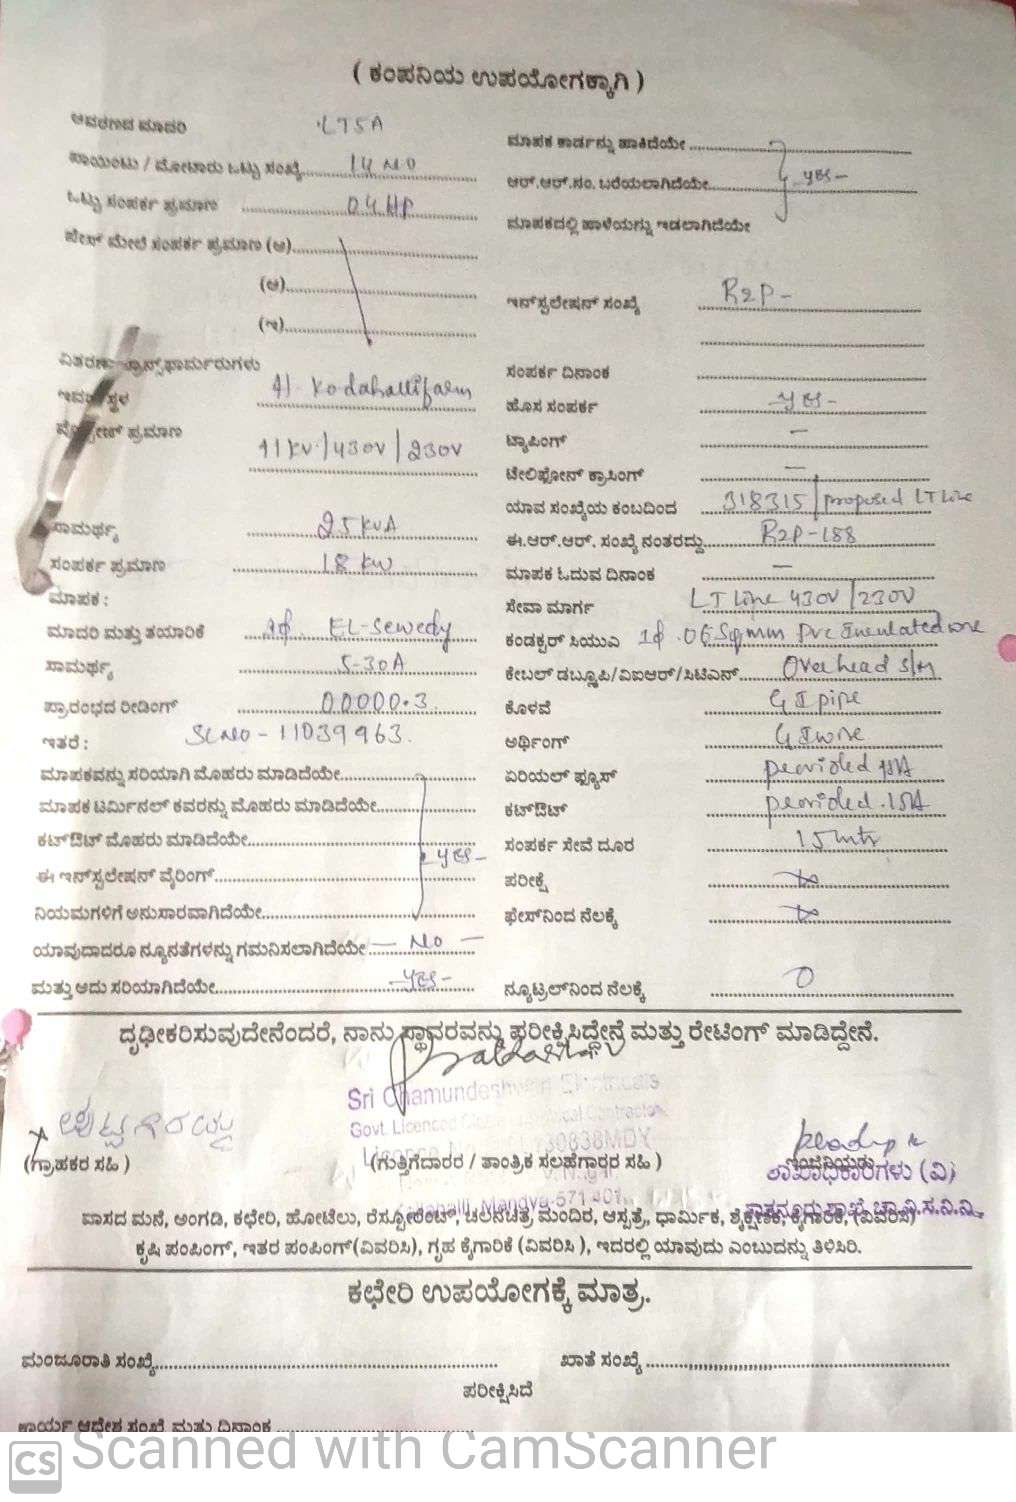 ( ಕಂಪನಿಯ ಉಪಯೋಗಕ್ಕಾಗಿ )
ಆವರಣದ ಮಾದರಿ LT5A
ಪಾಯಿಂಟು / ಮೋಟಾರು ಒಟ್ಟು ಸಂಖ್ಯೆ 14 NO
ಒಟ್ಟು ಸಂಪರ್ಕ ಪ್ರಮಾಣ 04 HP
ಫೇಸ್ ಮೇಲೆ ಸಂಪರ್ಕ ಪ್ರಮಾಣ (ಅ)
(ಆ)
(ಇ)
ವಿತರಣಾ ಟ್ರಾನ್ಸ್‌ಫಾರ್ಮರುಗಳು
ಇರುವ ಸ್ಥಳ At Kodahalli farm
ವೋಲ್ಟೇಜ್ ಪ್ರಮಾಣ 11KV/430V/230V
ಸಾಮರ್ಥ್ಯ 25 KVA
ಸಂಪರ್ಕ ಪ್ರಮಾಣ 18 KW
ಮಾಪಕ :
ಮಾದರಿ ಮತ್ತು ತಯಾರಿಕೆ 1ϕ EL-Sewedy
ಸಾಮರ್ಥ್ಯ 5-30A
ಪ್ರಾರಂಭದ ರೀಡಿಂಗ್ 00000.3
ಇತರೆ : SL NO - 11039963.
ಮಾಪಕವನ್ನು ಸರಿಯಾಗಿ ಮೊಹರು ಮಾಡಿದೆಯೇ
ಮಾಪಕ ಟರ್ಮಿನಲ್ ಕವರನ್ನು ಮೊಹರು ಮಾಡಿದೆಯೇ
ಕಟ್‌ಔಟ್ ಮೊಹರು ಮಾಡಿದೆಯೇ
yes-
ಈ ಇನ್‌ಸ್ಟಲೇಷನ್ ವೈರಿಂಗ್
ನಿಯಮಗಳಿಗೆ ಅನುಸಾರವಾಗಿದೆಯೇ
ಯಾವುದಾದರೂ ನ್ಯೂನತೆಗಳನ್ನು ಗಮನಿಸಲಾಗಿದೆಯೇ - No -
ಮತ್ತು ಅದು ಸರಿಯಾಗಿದೆಯೇ -yes-
ಮಾಪಕ ಕಾರ್ಡನ್ನು ಹಾಕಿದೆಯೇ
ಆರ್.ಆರ್.ಸಂ. ಬರೆಯಲಾಗಿದೆಯೇ yes-
ಮಾಪಕದಲ್ಲಿ ಹಾಳೆಯನ್ನು ಇಡಲಾಗಿದೆಯೇ
ಇನ್‌ಸ್ಟಲೇಷನ್ ಸಂಖ್ಯೆ R2P-
ಸಂಪರ್ಕ ದಿನಾಂಕ
ಹೊಸ ಸಂಪರ್ಕ -yes-
ಟ್ಯಾಪಿಂಗ್ -
ಟೇಲಿಫೋನ್ ಕ್ರಾಸಿಂಗ್ -
ಯಾವ ಸಂಖ್ಯೆಯ ಕಂಬದಿಂದ 318315/proposed LT line
ಈ.ಆರ್.ಆರ್. ಸಂಖ್ಯೆ ನಂತರದ್ದು R2P-188
ಮಾಪಕ ಓದುವ ದಿನಾಂಕ -
ಸೇವಾ ಮಾರ್ಗ LT Line 430V/230V
ಕಂಡಕ್ಟರ್ ಸಿಯುವಿ 1ϕ .06Sqmm PVC Insulated wire
ಕೇಬಲ್ ಡಬ್ಲ್ಯೂಪಿ/ವಿಐಆರ್/ಸಿಟಿಎಸ್ Overhead s/m
ಕೊಳವೆ GI pipe
ಅರ್ಥಿಂಗ್ GI wire
ಏರಿಯಲ್ ಫ್ಯೂಸ್ peovided 15A
ಕಟ್‌ಔಟ್ peovided .15A
ಸಂಪರ್ಕ ಸೇವೆ ದೂರ 15 mtr
ಪರೀಕ್ಷೆ
ಫೇಸ್‌ನಿಂದ ನೆಲಕ್ಕೆ
ನ್ಯೂಟ್ರಲ್‌ನಿಂದ ನೆಲಕ್ಕೆ 0
ದೃಢೀಕರಿಸುವುದೇನೆಂದರೆ, ನಾನು ಸ್ಥಾವರವನ್ನು ಪರೀಕ್ಷಿಸಿದ್ದೇನೆ ಮತ್ತು ರೇಟಿಂಗ್ ಮಾಡಿದ್ದೇನೆ.
Sri Chamundeshwari Electricals
Govt. Licenced Electrical Contractor
30838MDY
Mandya-571401
(ಗ್ರಾಹಕರ ಸಹಿ )
(ಗುತ್ತಿಗೆದಾರರ / ತಾಂತ್ರಿಕ ಸಲಹೆಗಾರರ ಸಹಿ )
ಇಂಜಿನಿಯರು
ಶಾಖಾಧಿಕಾರಿಗಳು (ವಿ)
ವಾಸದ ಮನೆ, ಅಂಗಡಿ, ಕಛೇರಿ, ಹೋಟೆಲು, ರೆಸ್ಟೋರೆಂಟ್, ಚಲನಚಿತ್ರ, ಮಂದಿರ, ಆಸ್ಪತ್ರೆ, ಧಾರ್ಮಿಕ, ಶೈಕ್ಷಣಿಕ, ಕೈಗಾರಿಕೆ, (ವಿವರಿಸಿ)
ಕೃಷಿ ಪಂಪಿಂಗ್, ಇತರ ಪಂಪಿಂಗ್(ವಿವರಿಸಿ), ಗೃಹ ಕೈಗಾರಿಕೆ (ವಿವರಿಸಿ ), ಇದರಲ್ಲಿ ಯಾವುದು ಎಂಬುದನ್ನು ತಿಳಿಸಿರಿ.
ಕಛೇರಿ ಉಪಯೋಗಕ್ಕೆ ಮಾತ್ರ.
ಮಂಜೂರಾತಿ ಸಂಖ್ಯೆ
ಖಾತೆ ಸಂಖ್ಯೆ
ಪರೀಕ್ಷಿಸಿದೆ
ಕಾರ್ಯ ಆದೇಶ ಸಂಖ್ಯೆ ಮತ್ತು ದಿನಾಂಕ
CS Scanned with CamScanner